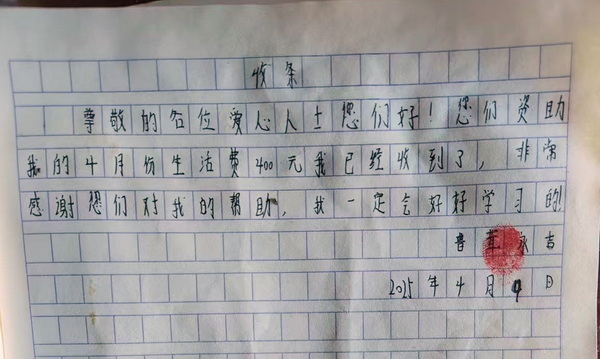 收条
尊敬的各位爱心人士您们好！您们资助
我的4月份生活费400元我已经收到了，非常
感谢您们对我的帮助，我一定会好好学习的！
普 永吉
2025年4月9日